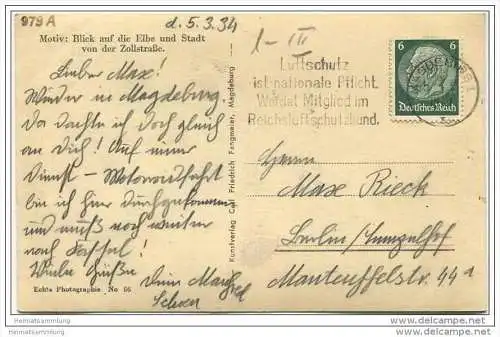 979A
d. 5.3.34
Motiv: Blick auf die Elbe und Stadt
von der Zollstraße.
Lieber Max!
Wieder in Magdeburg.
Da dachte ich doch gleich
an Dich! Auf einer
Dienst - Motorradfahrt
bin ich hier durchgekommen
und muß noch weiter
nach
Viele Grüße
Dein
Echte Photographie No 66
Kunstverlag Carl Friedrich Fangmeier, Magdeburg
I - III
Luftschutz
ist nationale Pflicht.
Werdet Mitglied im
Reichsluftschutzbund.
6 6
Deutsches Reich
MAGDEBURG 1
Herrn
Max Rieck
Berlin/Tempelhof
Manteuffelstr. 44a
Heimatsammlung
www.heimatsammlung.de